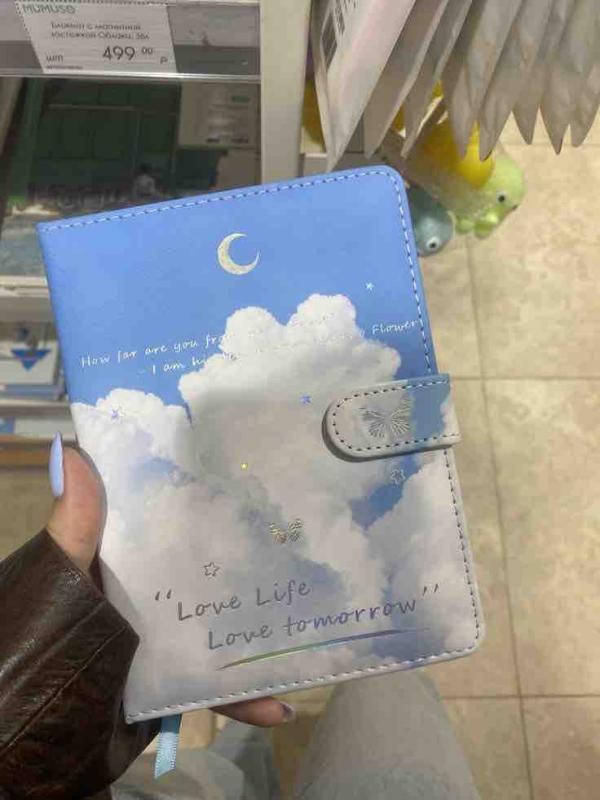 MUMUSO
Блокнот с магнитной
застежкой Облака, 36л
шт 499 00 ₽
How far are you
I am Flower
“Love Life
Love tomorrow”